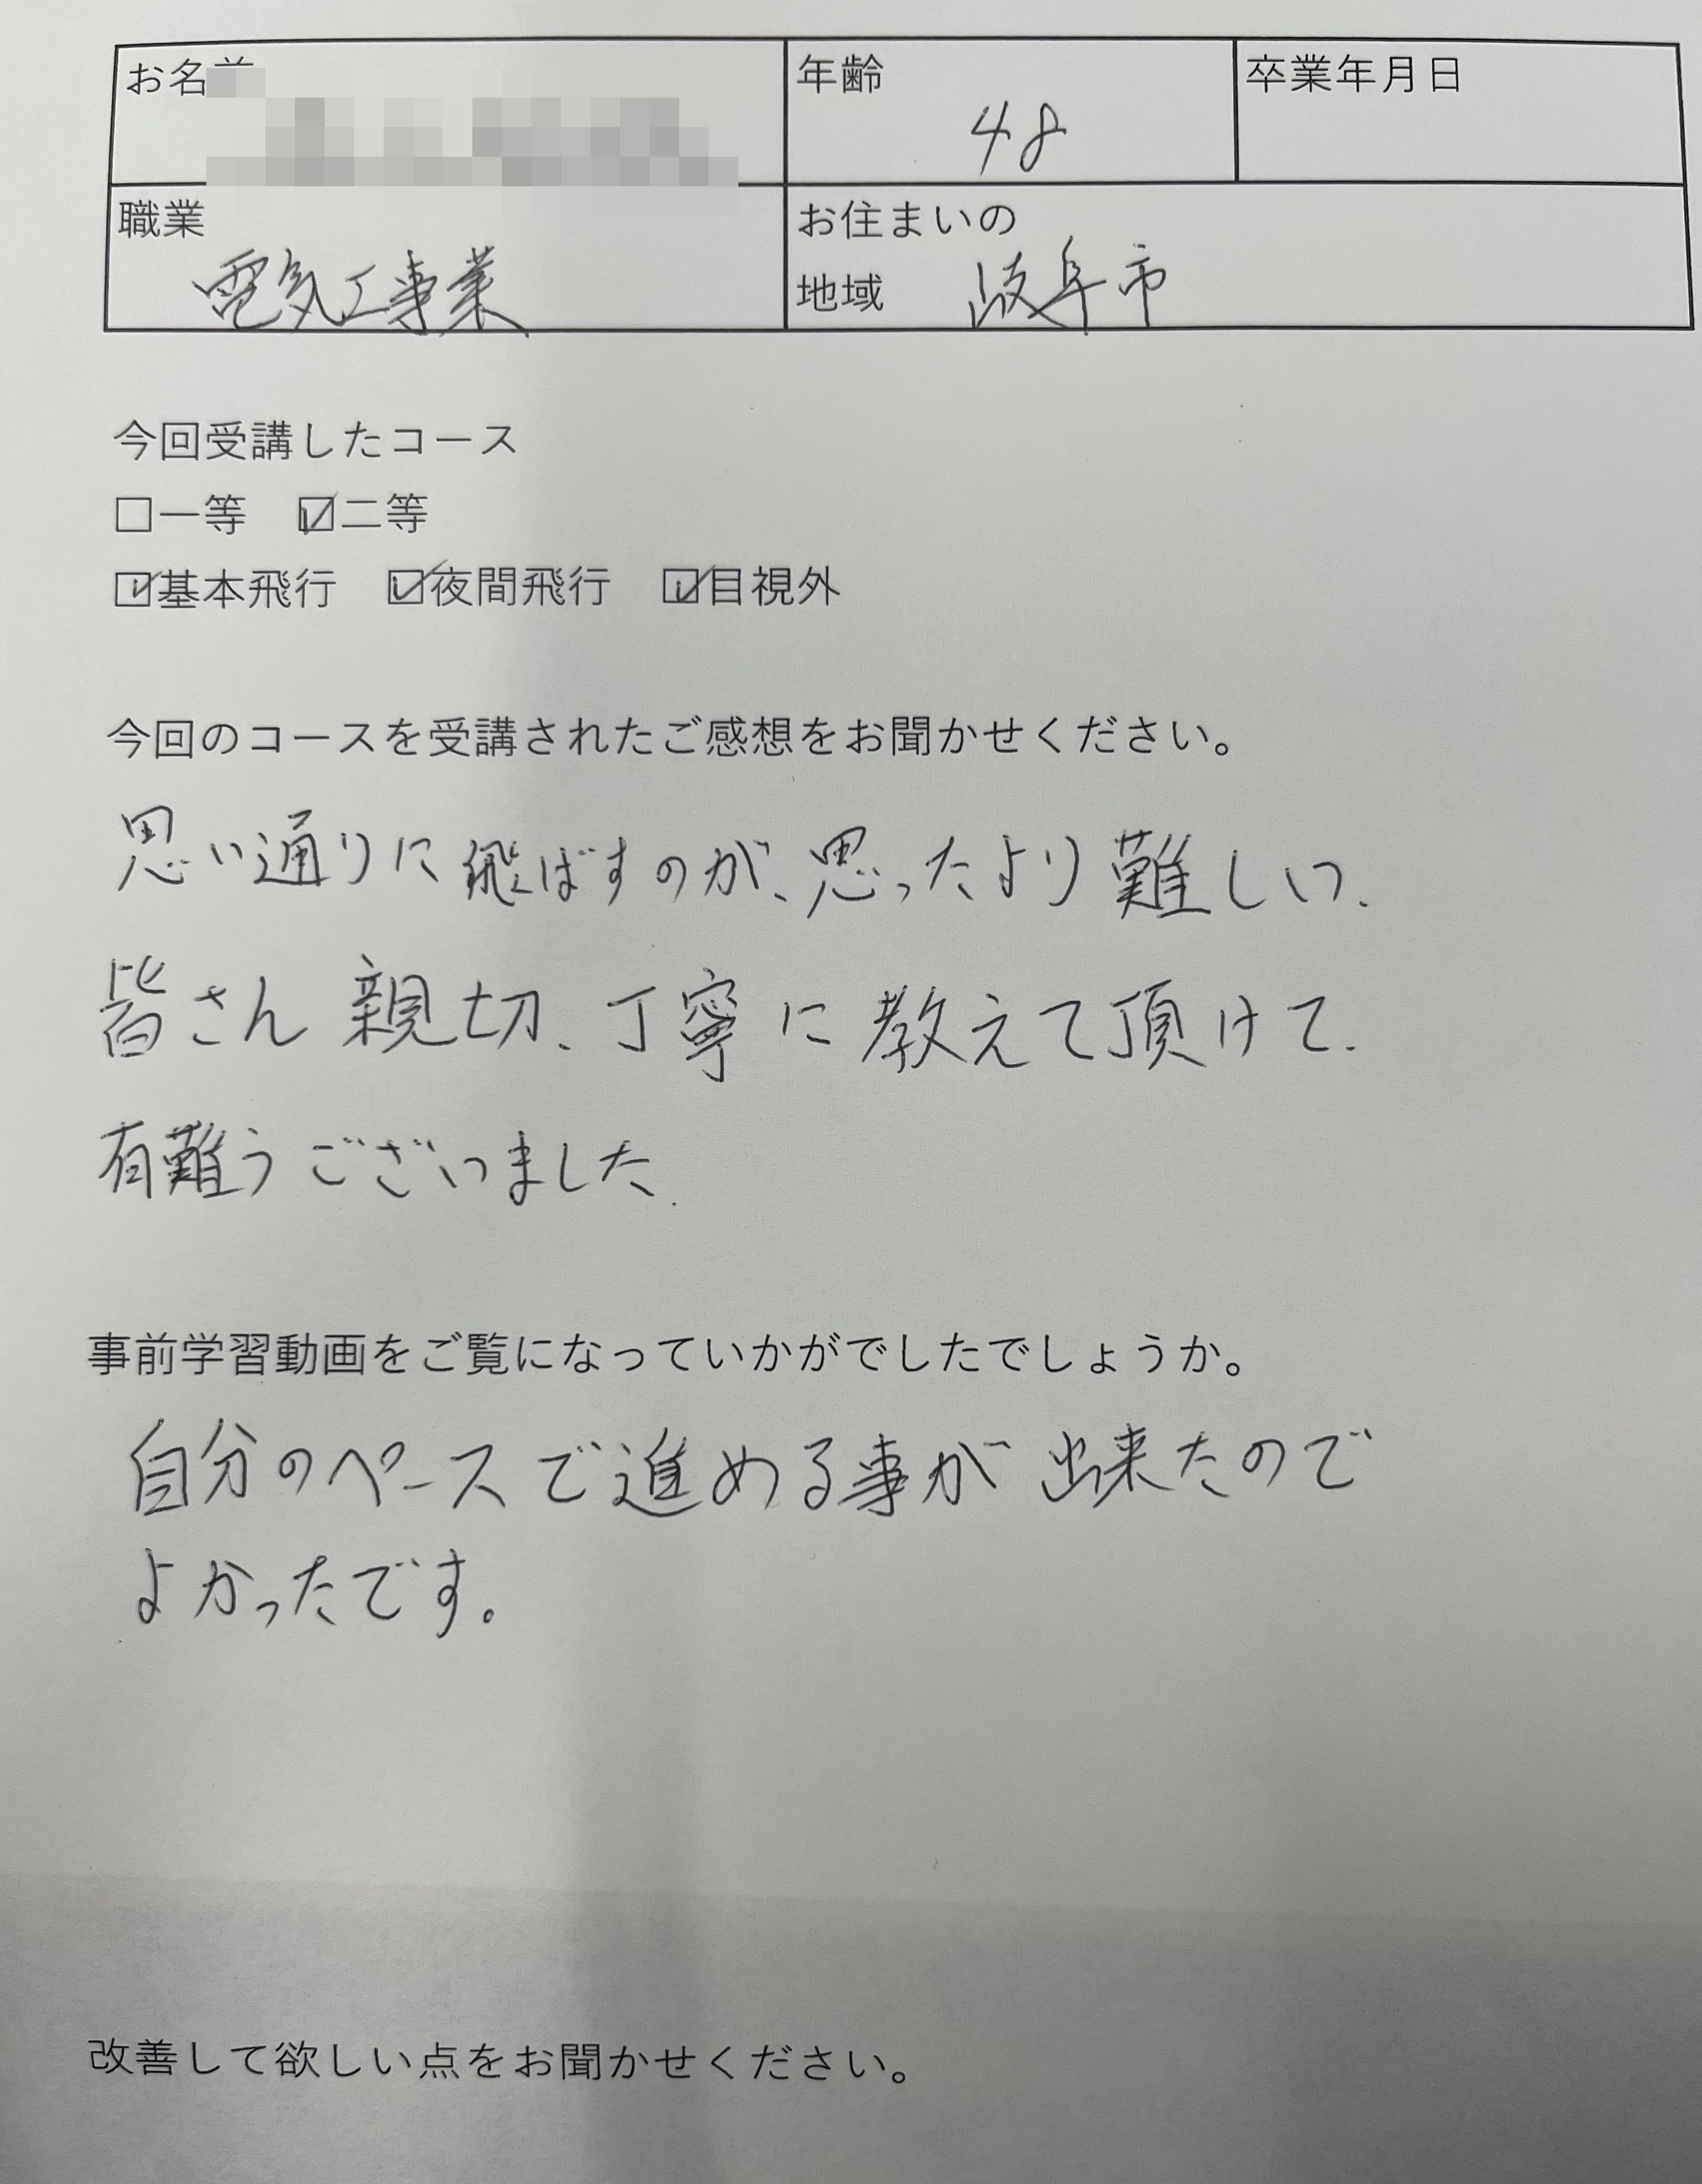 お名前 年齢 卒業年月日
48
職業 お住まいの
電気工事業 地域 岐阜市
今回受講したコース
□一等 ☑二等
☑基本飛行 ☑夜間飛行 ☑目視外
今回のコースを受講されたご感想をお聞かせください。
思い通りに飛ばすのが、思ったより難しい.
皆さん親切、丁寧に教えて頂けて.
有難うございました.
事前学習動画をご覧になっていかがでしたでしょうか。
自分のペースで進める事が出来たので
よかったです。
改善して欲しい点をお聞かせください。